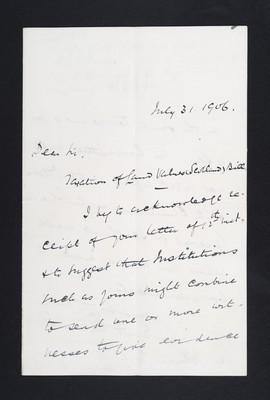 July 31 1906.
Dear Sir.
Taxation of Land Values Scotland Bill
I beg to acknowledge re-
ceipt of your letter of inst.
& to suggest that Institutions
such as yours might combine
to send one or more wit-
nesses to give evidence